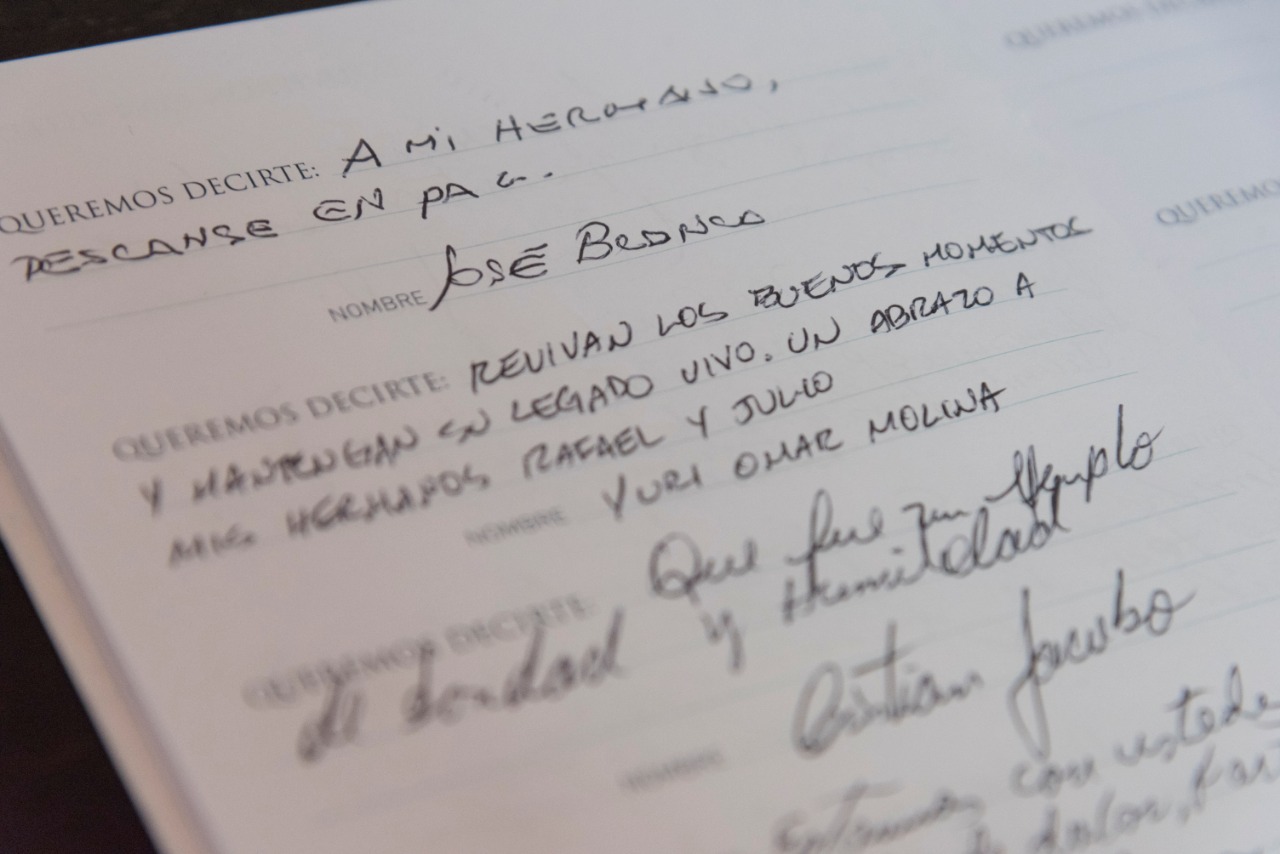 QUEREMOS DECIRTE: A MI HERMANO,
DESCANSE EN PAZ.
NOMBRE JOSÉ
QUEREMOS DECIRTE: REVIVAN LOS BUENOS MOMENTOS
Y MANTENGAN SU LEGADO VIVO. UN ABRAZO A
MIS HERMANOS RAFAEL Y JULIO
NOMBRE YURI OMAR MOLINA
QUEREMOS DECIRTE: Que fue un Ejemplo
de bondad y Humildad
NOMBRE Cristian Jacobo
Estamos con ustedes
dolor,
QUEREMOS DECIRTE
QUEREMOS